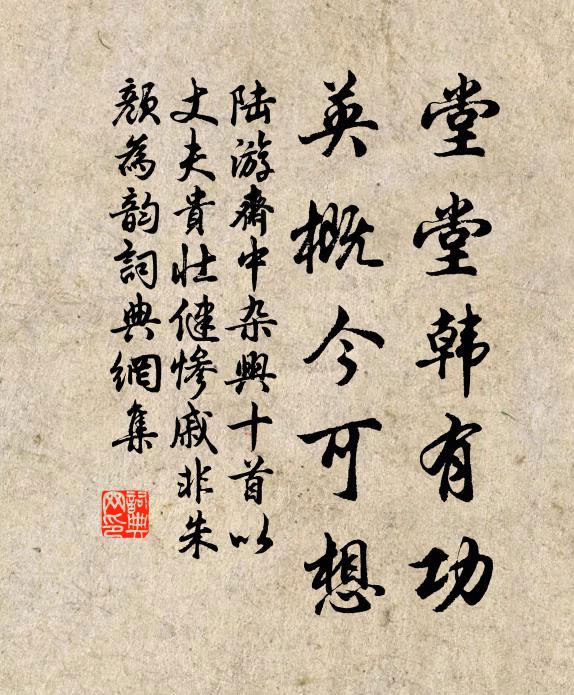 堂堂韩有功
英概今可想
陆游斋中杂興十首以
丈夫貴壮健惨戚非朱
颜為韵詞典網集
詞典网印